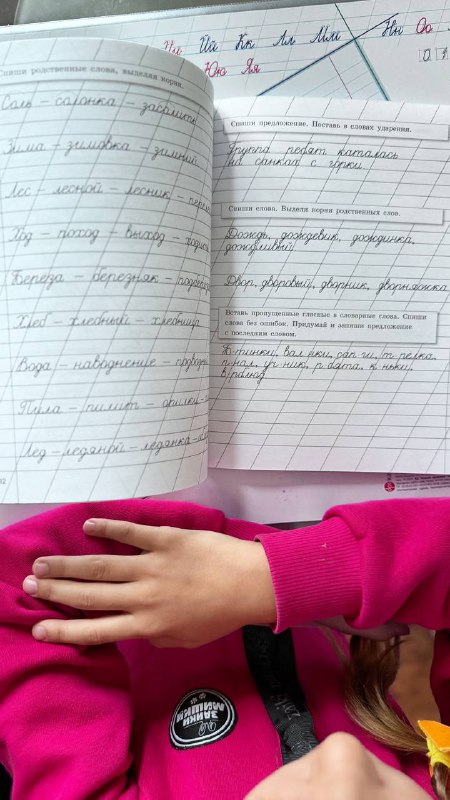 Ии Йй Кк Лл Мм Нн Оо
Юю Яя
Спиши родственные слова, выделяя корни.
Соль – солонка – засолить
Зима – зимовка – зимний
Лес – лесной – лесник –
Ход – поход – выход –
Береза – березняк –
Хлеб – хлебный – хлебница
Вода – наводнение –
Пила – пилит – опилки –
Лед – ледяной – ледянка –
Спиши предложение. Поставь в словах ударения.
Группа ребят каталась
на санках с горки.
Спиши слова. Выдели корни родственных слов.
Дождь, дождевик, дождинка,
дождливый
Двор, дворовый, дворник, дворняжка
Вставь пропущенные гласные в словарные слова. Спиши
слова без ошибок. Придумай и запиши предложение
с последним словом.
Б тинки, вал нки, сап ги, т релка,
п нал, уч ник, р бята, к ньки,
в рблюд
ЗАЙКИ
МИШКИ